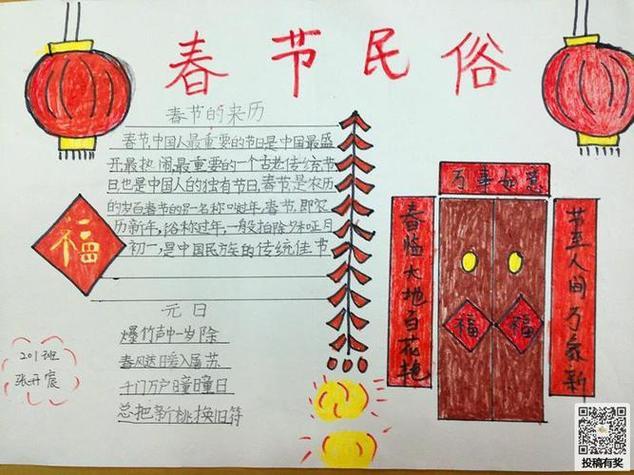 春节民俗
春节的来历
春节,中国人最重要的节日是中国最盛
开,最热闹,最重要的一个古老传统节
日,也是中国人的独有节日,春节,是农历
的岁首春节的另一名称叫过年,春节,即农
历新年,俗称过年,一般除夕和正月
初一,是中国民族的传统佳节
福
元日
爆竹声中一岁除
春风送暖入屠苏
千门万户曈曈日
总把新桃换旧符
201班
张开宸
万事如意
春临大地百花艳
福 福
节至人间万象新
投稿有奖